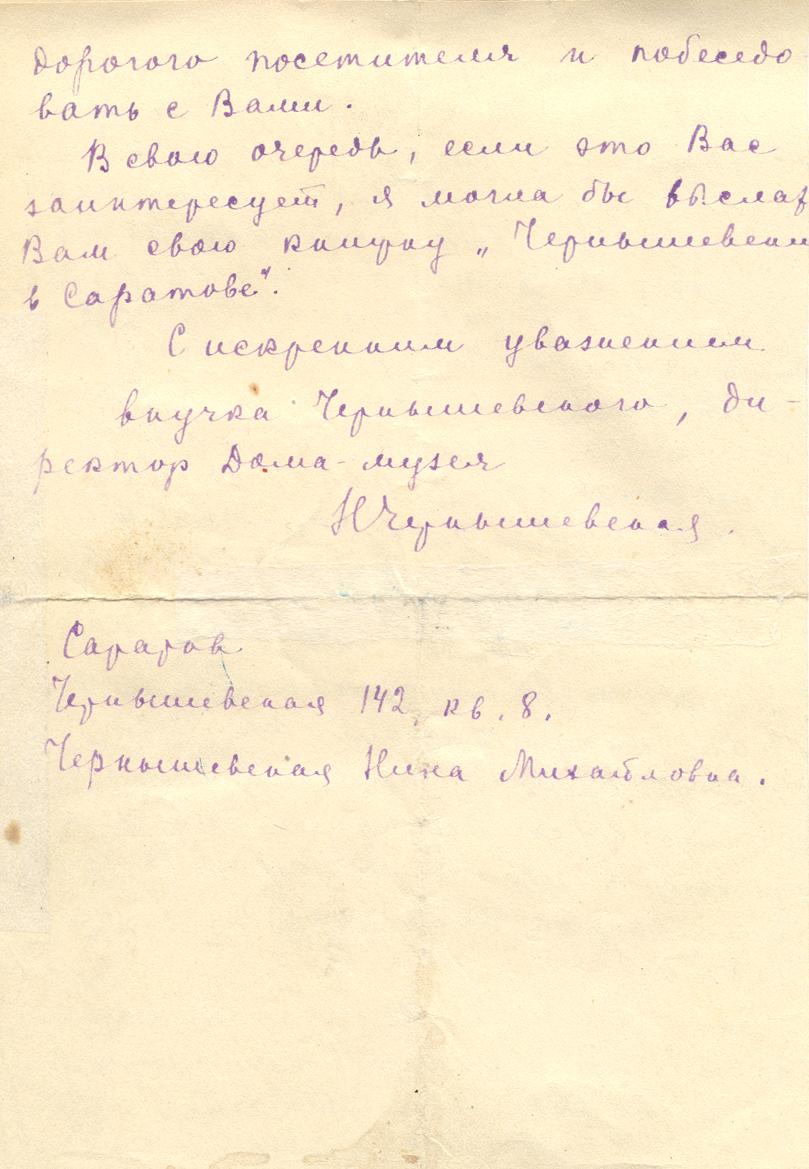 дорогого посетителя и побеседо
вать с Вами.
В свою очередь, если это Вас
заинтересует, я могла бы выслат
Вам свою книжку „Чернышевски
в Саратове".
С искренним уважением
внучка Чернышевского, ди-
ректор Дома-музея
НЧернышевская.
Саратов
Чернышевская 142, кв. 8.
Чернышевская Нина Михайловна.